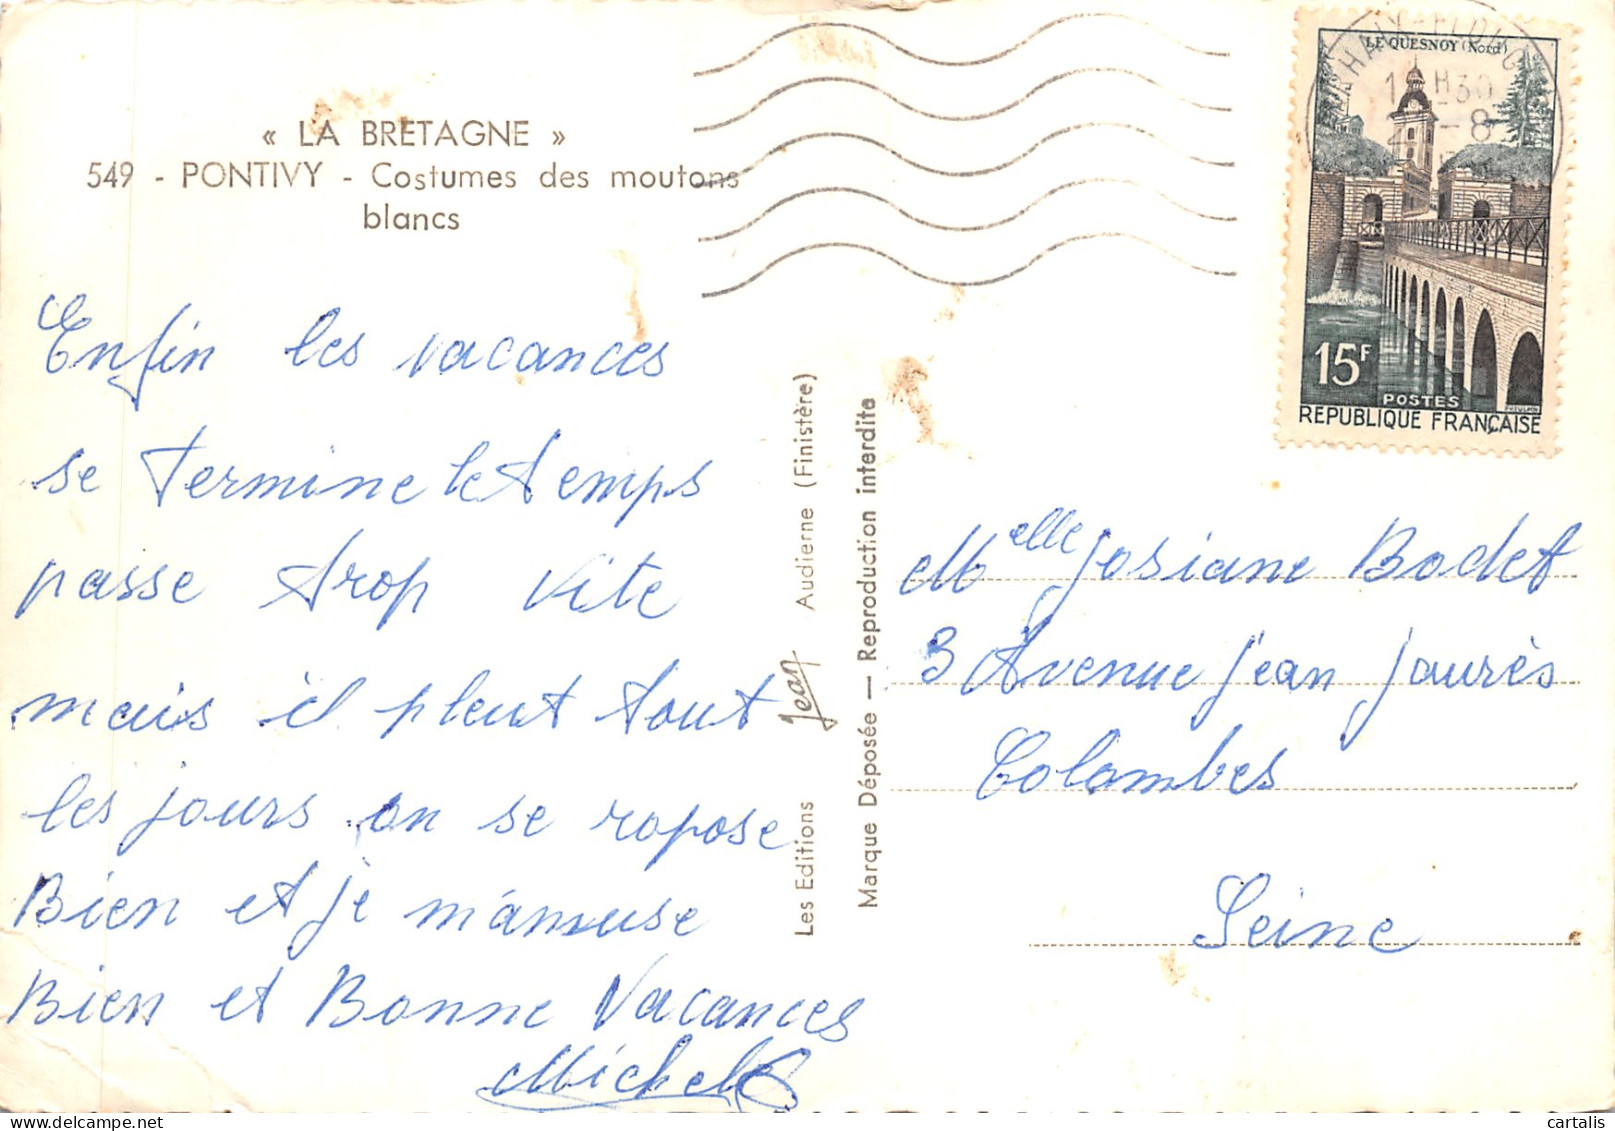 « LA BRETAGNE »
549 - PONTIVY - Costumes des moutons
blancs
Enfin les vacances
se termine le temps
passe trop vite
mais il pleut tout
les jours on se ropose
Bien et je m'amuse
Bien et Bonne Vacances
Michele
Les Editions Jean Audierne (Finistère)
Marque Déposée — Reproduction interdite
LE QUESNOY (Nord)
H30
-8
15F
POSTES
REPUBLIQUE FRANÇAISE
Melle Josiane Bodet
3 Avenue Jean Jaurès
Colombes
Seine
cartalis